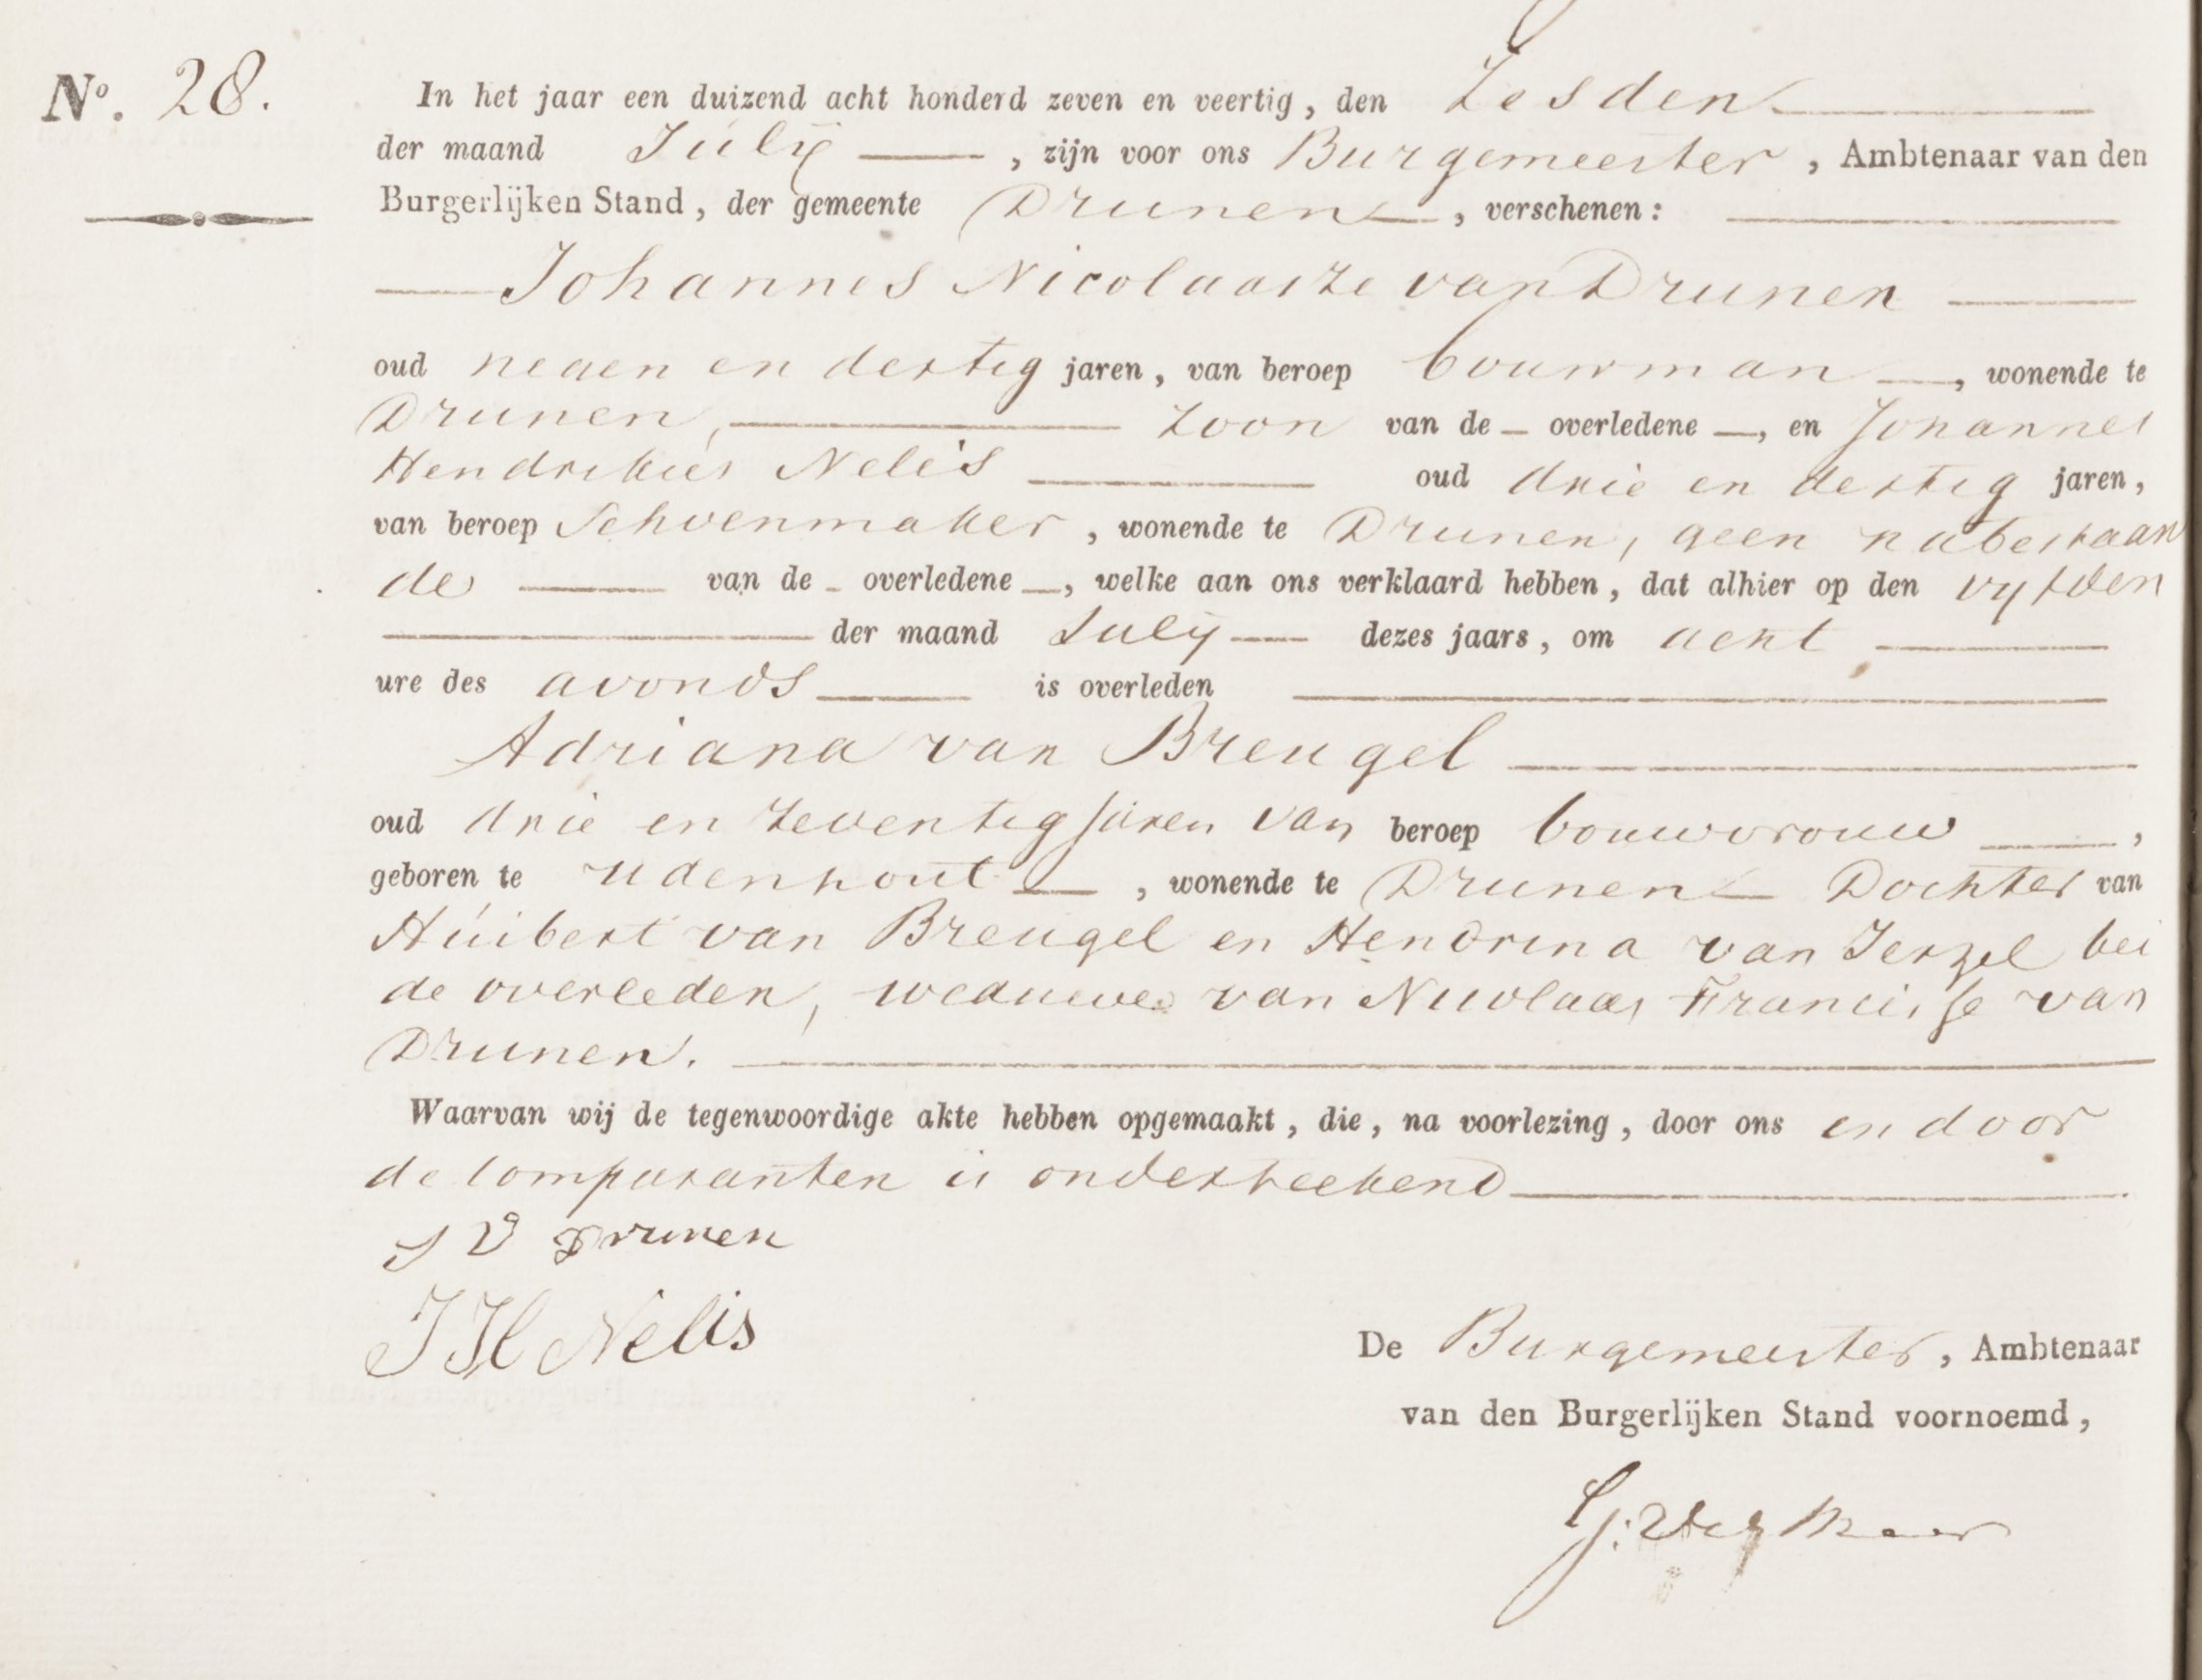 No. 28.
In het jaar een duizend acht honderd zeven en veertig, den Zesden
der maand Julij, zijn voor ons Burgemeester, Ambtenaar van den
Burgerlijken Stand, der gemeente Drunen, verschenen:
Johannes Nicolaasze van Drunen
oud negen en dertig jaren, van beroep bouwman, wonende te
Drunen, Zoon van de overledene, en Johannes
Hendrikus Nelis oud drie en dertig jaren,
van beroep Schoenmaker, wonende te Drunen, geen nabestaan
de van de overledene, welke aan ons verklaard hebben, dat alhier op den vyfden
der maand Julij dezes jaars, om acht
ure des avonds is overleden
Adriana van Breugel
oud drie en zeventig jaren van beroep bouwvrouw,
geboren te Udenhout, wonende te Drunen Dochter van
Huibert van Breugel en Hendrina van Iersel bei
de overleden, weduwe van Nicolaas Francisse van
Drunen.
Waarvan wij de tegenwoordige akte hebben opgemaakt, die, na voorlezing, door ons en door
de Comparanten is onderteekend
J V Drunen
J H Nelis
De Burgemeester, Ambtenaar
van den Burgerlijken Stand voornoemd,